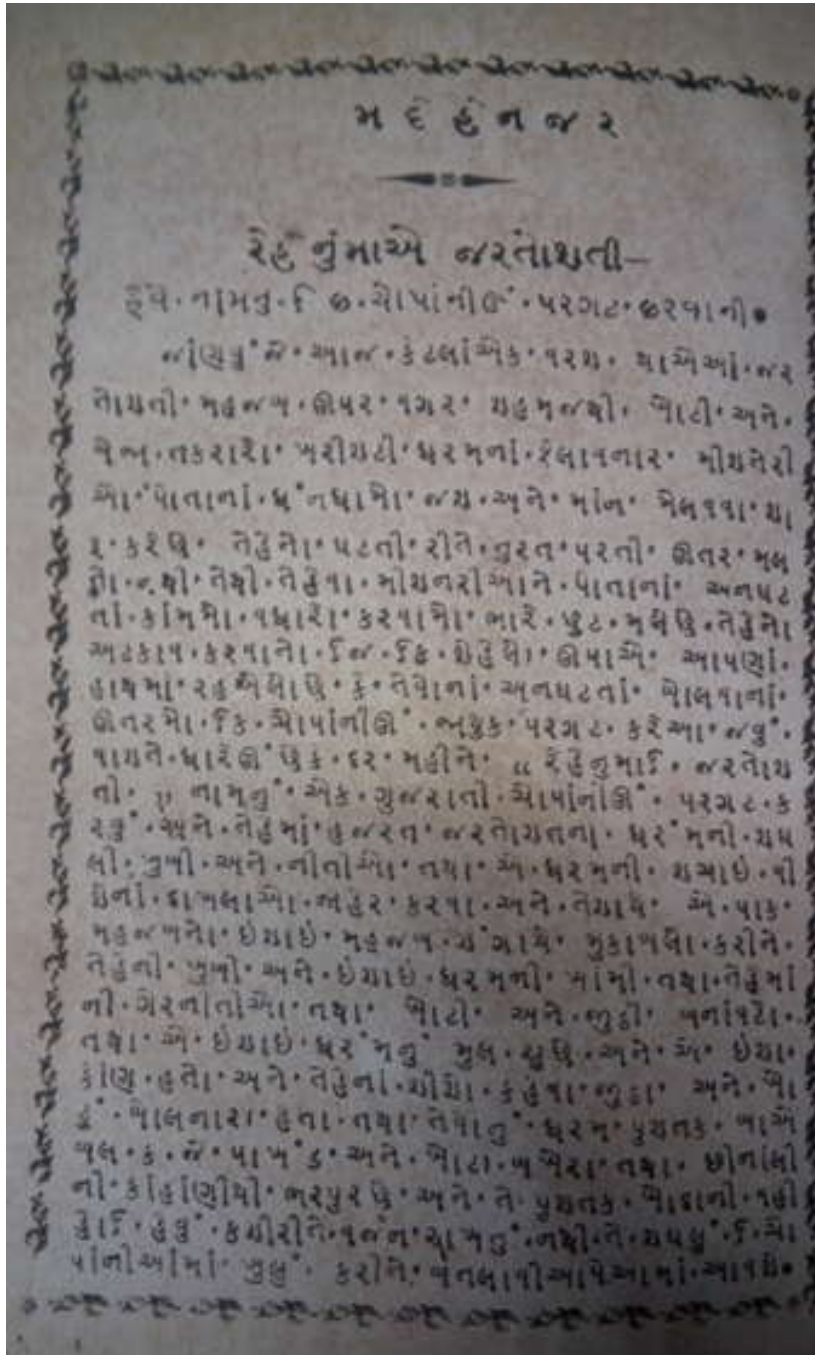 મદેહેનજર
રેહેનુંમાએ જરતોશતી—
હેવે·નાંમનુ·ઈક·ચોપાંનીઊં·પરગટ·કરવાની·
જાંણવુંજે·આજ·કેટલાંએક·વરશ·થાએઆં·જર
તોશતી·મહજબ·ઊપર·વગર·શહમજથી·ખોટી·અને·
તકરારો·ખરીશટી·ધરમનાં·ફેલાવનાર·મીશનેરી
ઓ·પોતાનાં·ધંનધામો·જશ·અને·માંન·મેલવવા·શા
રુ·કરેછે·તેહેનો·ઘટતી·રીતે·તુરત·પરતી·ઊતર·મલ
તો·નથી·તેથી·તેહેવા·મીશનરીઓને·પોતાનાં·અનઘટ
તાં·કાંમમો·વધારો·કરવામો·ભારે·છુટ·મલેછે·તેહેનો
અટકાવ·કરવાનો·ઈજ·ઈક·શેહેલો·ઊપાએ·આપણાં·
હાથમાં·રહએલોછે·કે·તેવોનાં·અનઘટતાં·બોલવાનાં·
ઊતરમો·ઈક·ચોપાંનીઊં·અચુક·પરગટ·કરેઆ·જવું·
વાશતે·ધારેઊંછેકે·દર·મહીને·“રેહેનુમાઈ·જરતોશ
તી·”નામનું·એક·ગુજરાતી·ચોપાંનીઊં·પરગટ·ક
રવું·અને·તેહમાં·હજરત·જરતોશતના·ધરંમની·શઘ
લી·ખુબી·અને·નીતીઓ·તથા·એ·ધરમની·શચાઇ·વી
શેનાં·દાખલાઓ·જાહેર·કરવા·અને·તેશાથે·એ·પાક·
મહજબનો·ઇશાઇ·મહજબ·શંગાથે·મુકાબલો·કરીને·
તેહેની·ખુબી·અને·ઇશાઇ·ધરમની·ખાંમી·તથા·તેહેમાં
ની·ગેરનીતીઓ·તથા·ખોટી·અને·જુઠી·બનાંવટો·
તથા·એ·ઇશાઇ·ધરંમનું·મુલ·શુછે·અને·એ·ઇશા·
કોંણ·હતો·અને·તેહેનાં·શીશો·કેહેવા·જુઠા·અને·ખો
ટું·બોલનારા·હતા·તથા·તેવોનું·ધરમ·પુશતક·બાએ
બલ·કે·જે·પાખંડ·અને·ખોટા·ખબેરો·તથા·છીનાંલી
ની·કાંહાંણીથી·ભરપુરછે·અને·તે·પુશતક·ખોદાની·વહી
હોઈ·હેવું·કશીરીતે·વજંન·રાખતું·નથી·તે·શઘલું·ઈ·ચો
પાંનીઆંમાં·ખુલું·કરીને·બતલાવીઆપેઆમાં·આવશે·